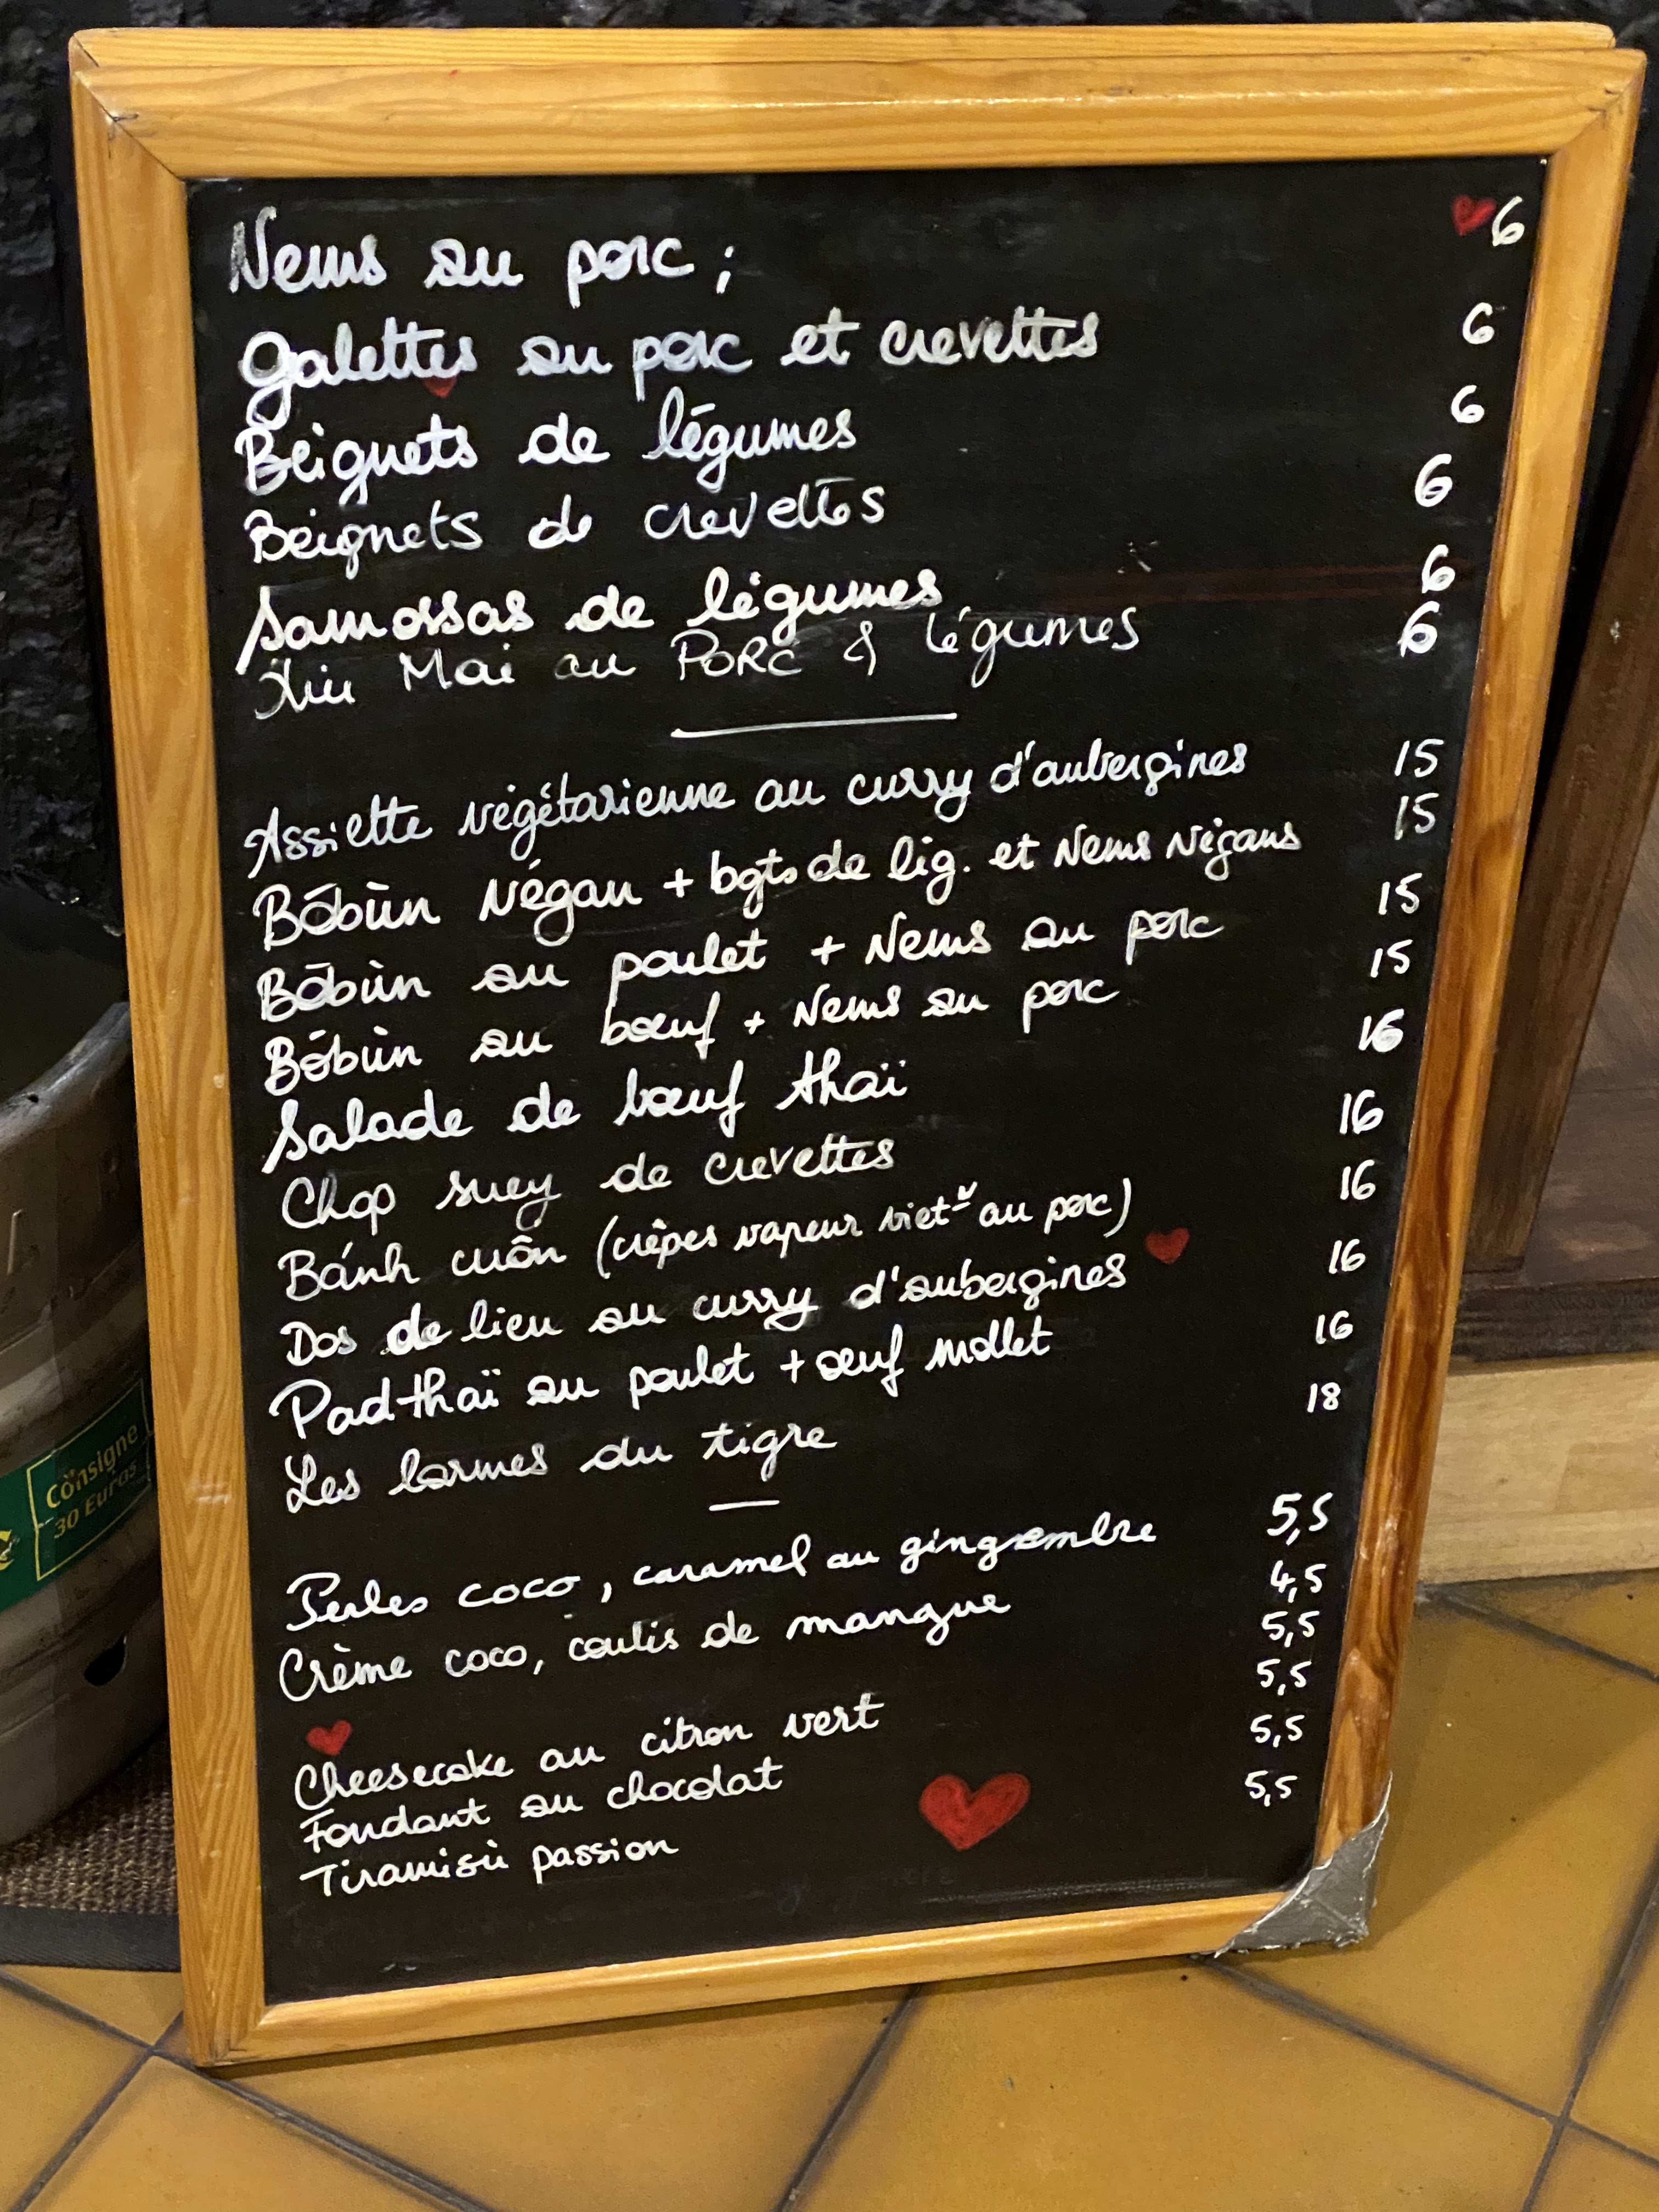 Nems au porc ; 6
Galettes au porc et crevettes 6
Beignets de légumes 6
Beignets de crevettes 6
Samossas de légumes 6
Xiu Mai au PORC & légumes 6
Assiette végétarienne au curry d'aubergines 15
Bōbùn Végan + bgts de lég. et Nems Végans 15
Bōbùn au poulet + Nems au porc 15
Bōbùn au bœuf + Nems au porc 15
Salade de bœuf thaï 16
Chop suey de crevettes 16
Bánh cuôn (crêpes vapeur viet au porc) 16
Dos de lieu au curry d'aubergines 16
Pad thaï au poulet + œuf mollet 16
Les larmes du tigre 18
Perles coco, caramel au gingembre 5,5
Crème coco, coulis de mangue 4,5
5,5
5,5
Cheesecake au citron vert 5,5
Fondant au chocolat 5,5
Tiramisù passion
Consigne
30 Euros